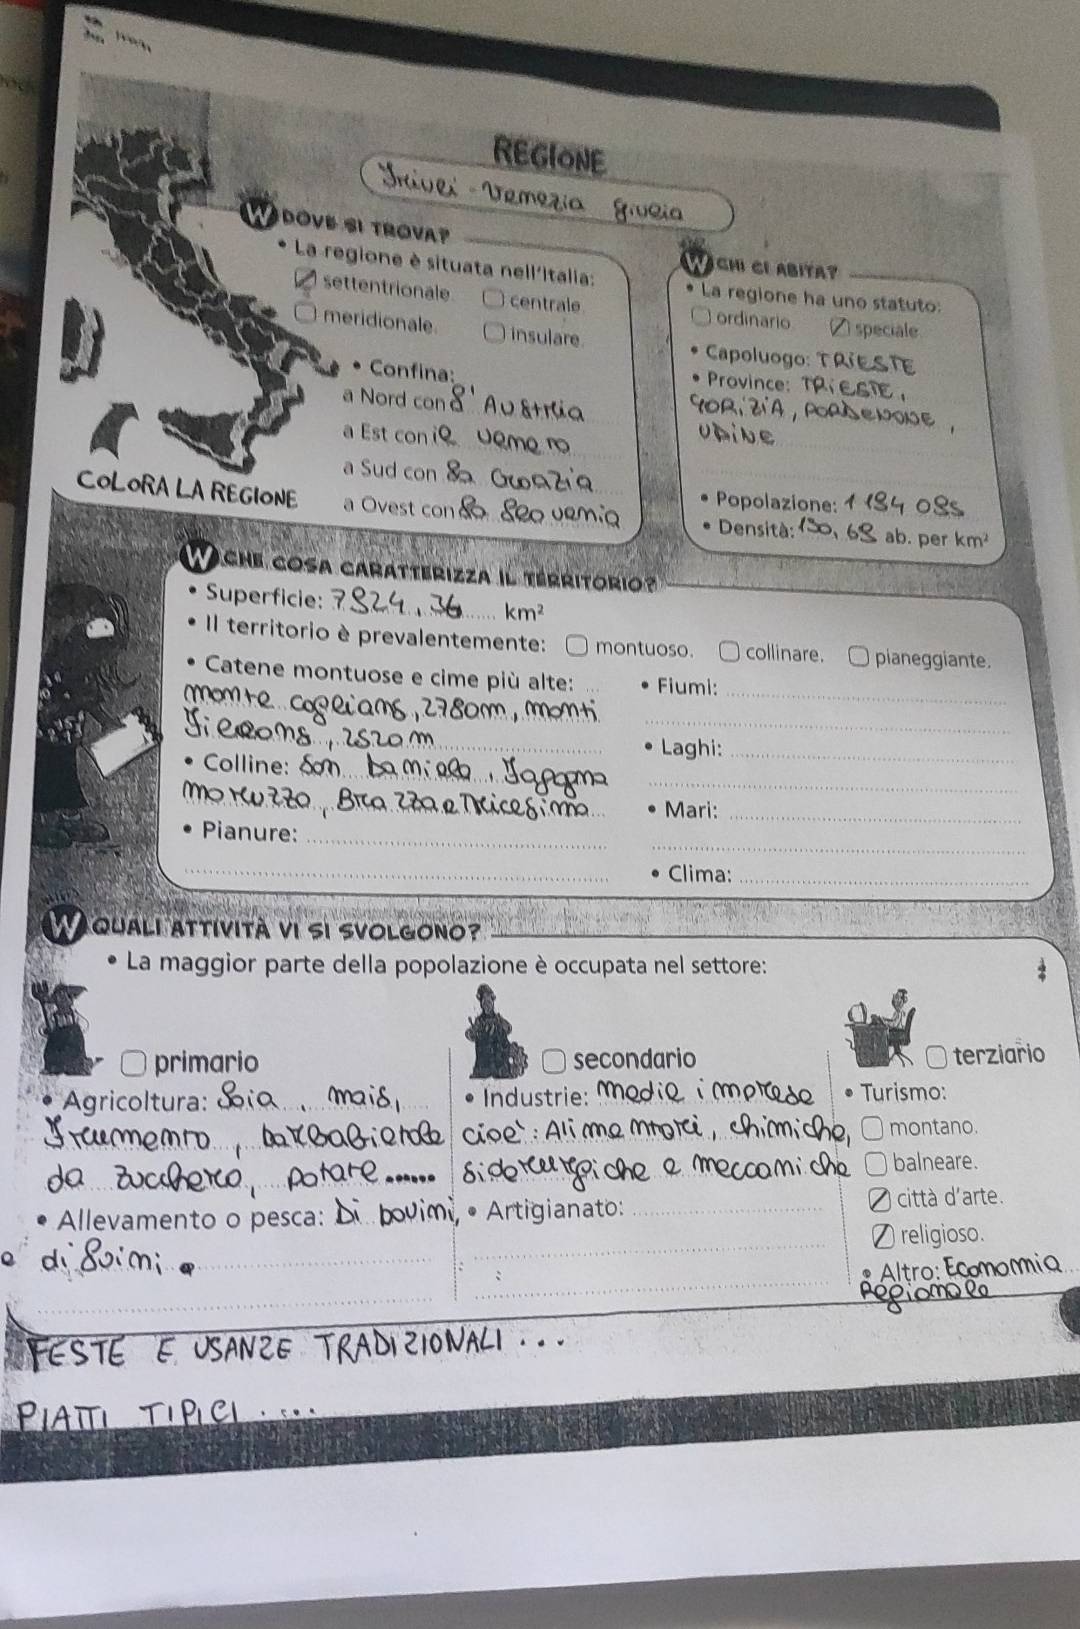 REGIONE
Friuli - Venezia Giulia
W DOVE SI TROVA?
• La regione è situata nell'Italia:
settentrionale. centrale.
meridionale. insulare.
• Confina:
a Nord con l'Austria
a Est con il Veneto
a Sud con la Croazia
a Ovest con la Slovenia
COLORA LA REGIONE
W CHI CI ABITA?
• La regione ha uno statuto:
ordinario. speciale.
• Capoluogo: TRIESTE
• Province: TRIESTE,
GORIZIA, PORDENONE,
UDINE
• Popolazione: 1 184 085
• Densità: 150,68 ab. per km²
W CHE COSA CARATTERIZZA IL TERRITORIO?
• Superficie: 7824,36 km²
• Il territorio è prevalentemente: montuoso. collinare. pianeggiante.
• Catene montuose e cime più alte:
monte coglians, 2780m, monti
2520m
• Colline: San Daniele, Fagagna
moruzzo, Brazza e Tricesimo
• Pianure:
• Fiumi:
• Laghi:
• Mari:
• Clima:
W QUALI ATTIVITÀ VI SI SVOLGONO?
• La maggior parte della popolazione è occupata nel settore:
primario
• Agricoltura: Soia, mais,
Frumento, barbabietole
da zucchero, patate......
• Allevamento o pesca: Di bovini,
e di suini
secondario
• Industrie: medie imprese
cioè: Alimentari, chimiche,
siderurgiche e meccaniche
• Artigianato:
terziario
• Turismo:
montano.
balneare.
città d'arte.
religioso.
• Altro: Economia
Regionale
FESTE E USANZE TRADIZIONALI ...
PIATTI TIPICI .....